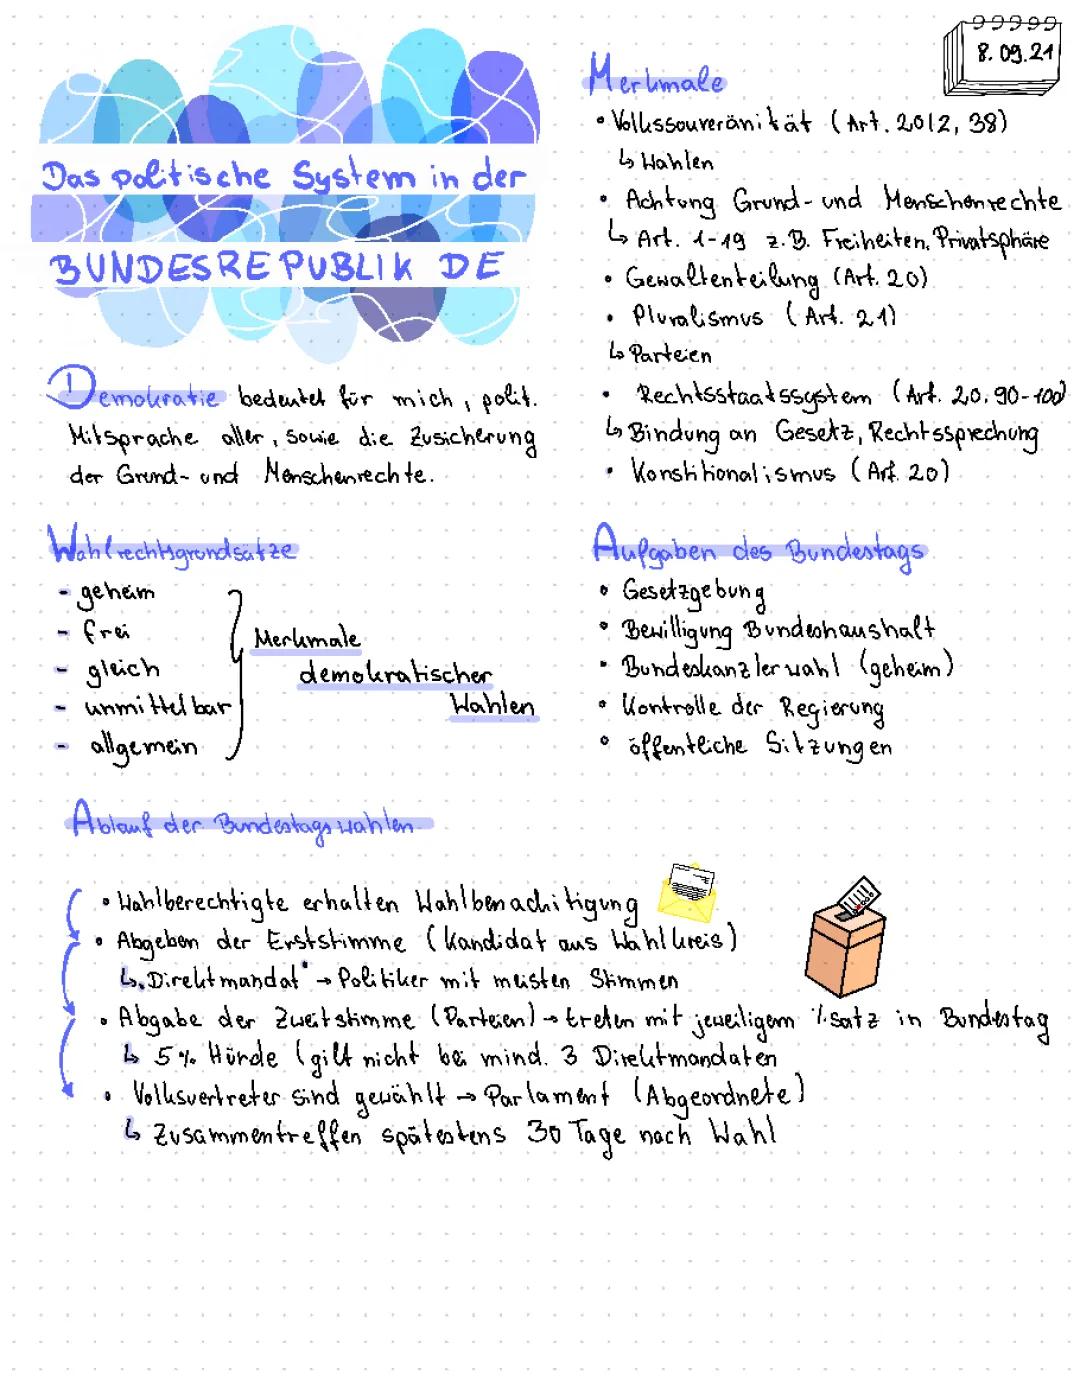 8.09.21
Das politische System in der
BUNDESREPUBLIK DE
Demokratie bedeutet für mich, polit.
Mitsprache aller, sowie die Zusicherung
der Grund- und Menschenrechte.
Merkmale
• Volkssouveränität (Art. 20|2, 38)
↳ Wahlen
• Achtung Grund- und Menschenrechte
↳ Art. 1-19 z.B. Freiheiten, Privatsphäre
• Gewaltenteilung (Art. 20)
• Pluralismus (Art. 21)
↳ Parteien
• Rechtsstaatssystem (Art. 20, 90-100)
↳ Bindung an Gesetz, Rechtssprechung
• Konstitionalismus (Art. 20)
Wahlrechtsgrundsätze
- geheim
- frei
- gleich
- unmittelbar
- allgemein
Merkmale
demokratischer
Wahlen
Aufgaben des Bundestags
• Gesetzgebung
• Bewilligung Bundeshaushalt
• Bundeskanzlerwahl (geheim)
• Kontrolle der Regierung
• öffentliche Sitzungen
Ablauf der Bundestagswahlen
• Wahlberechtigte erhalten Wahlbenachitigung
• Abgeben der Erststimme (Kandidat aus Wahlkreis)
↳ „Direktmandat" → Politiker mit meisten Stimmen
• Abgabe der Zweitstimme (Parteien) → treten mit jeweiligem %satz in Bundestag
↳ 5% Hürde (gilt nicht bei mind. 3 Direktmandaten
• Volksvertreter sind gewählt → Parlament (Abgeordnete)
↳ Zusammentreffen spätestens 30 Tage nach Wahl